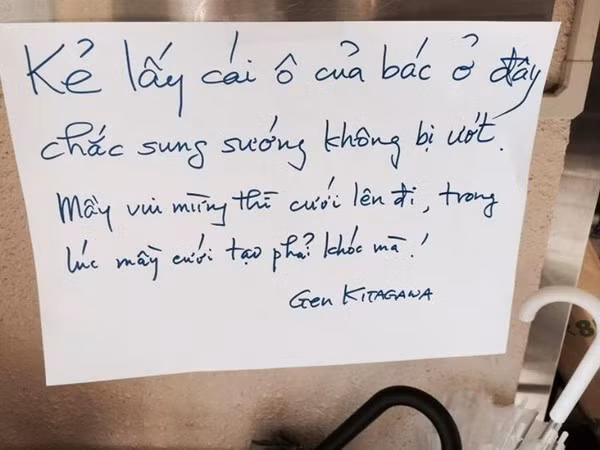 Kẻ lấy cái ô của bác ở đây
chắc sung sướng không bị ướt.
Mầy vui mừng thì cưới lên đi, trong
lúc mầy cưới tạo phải khóc mà!
Gen KITAGAWA